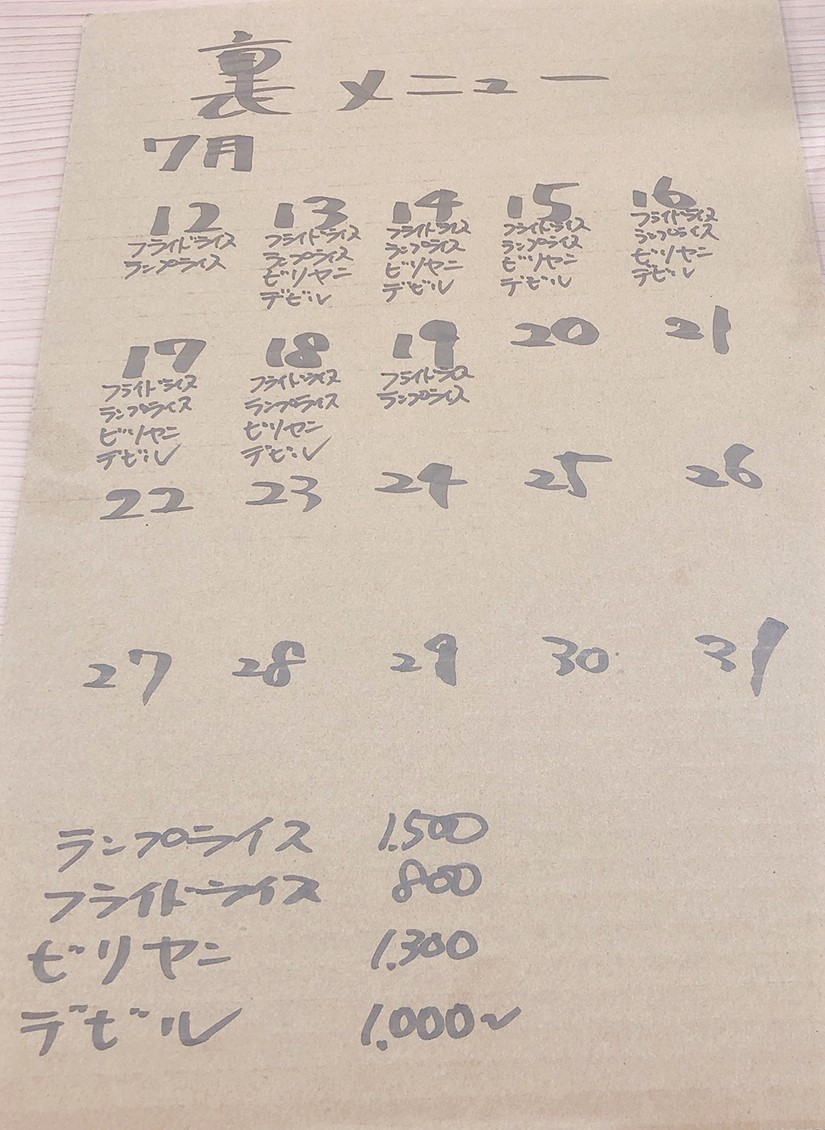 裏メニュー
7月
12 13 14 15 16
フライドライス フライドライス フライドライス フライドライス フライドライス
ランプライス ランプライス ランプライス ランプライス ランプライス
ビリヤニ ビリヤニ ビリヤニ ビリヤニ
デビル デビル デビル デビル
17 18 19 20 21
フライドライス フライドライス フライドライス
ランプライス ランプライス ランプライス
ビリヤニ ビリヤニ
デビル デビル
22 23 24 25 26
27 28 29 30 31
ランプライス 1.500
フライドライス 800
ビリヤニ 1.300
デビル 1.000~